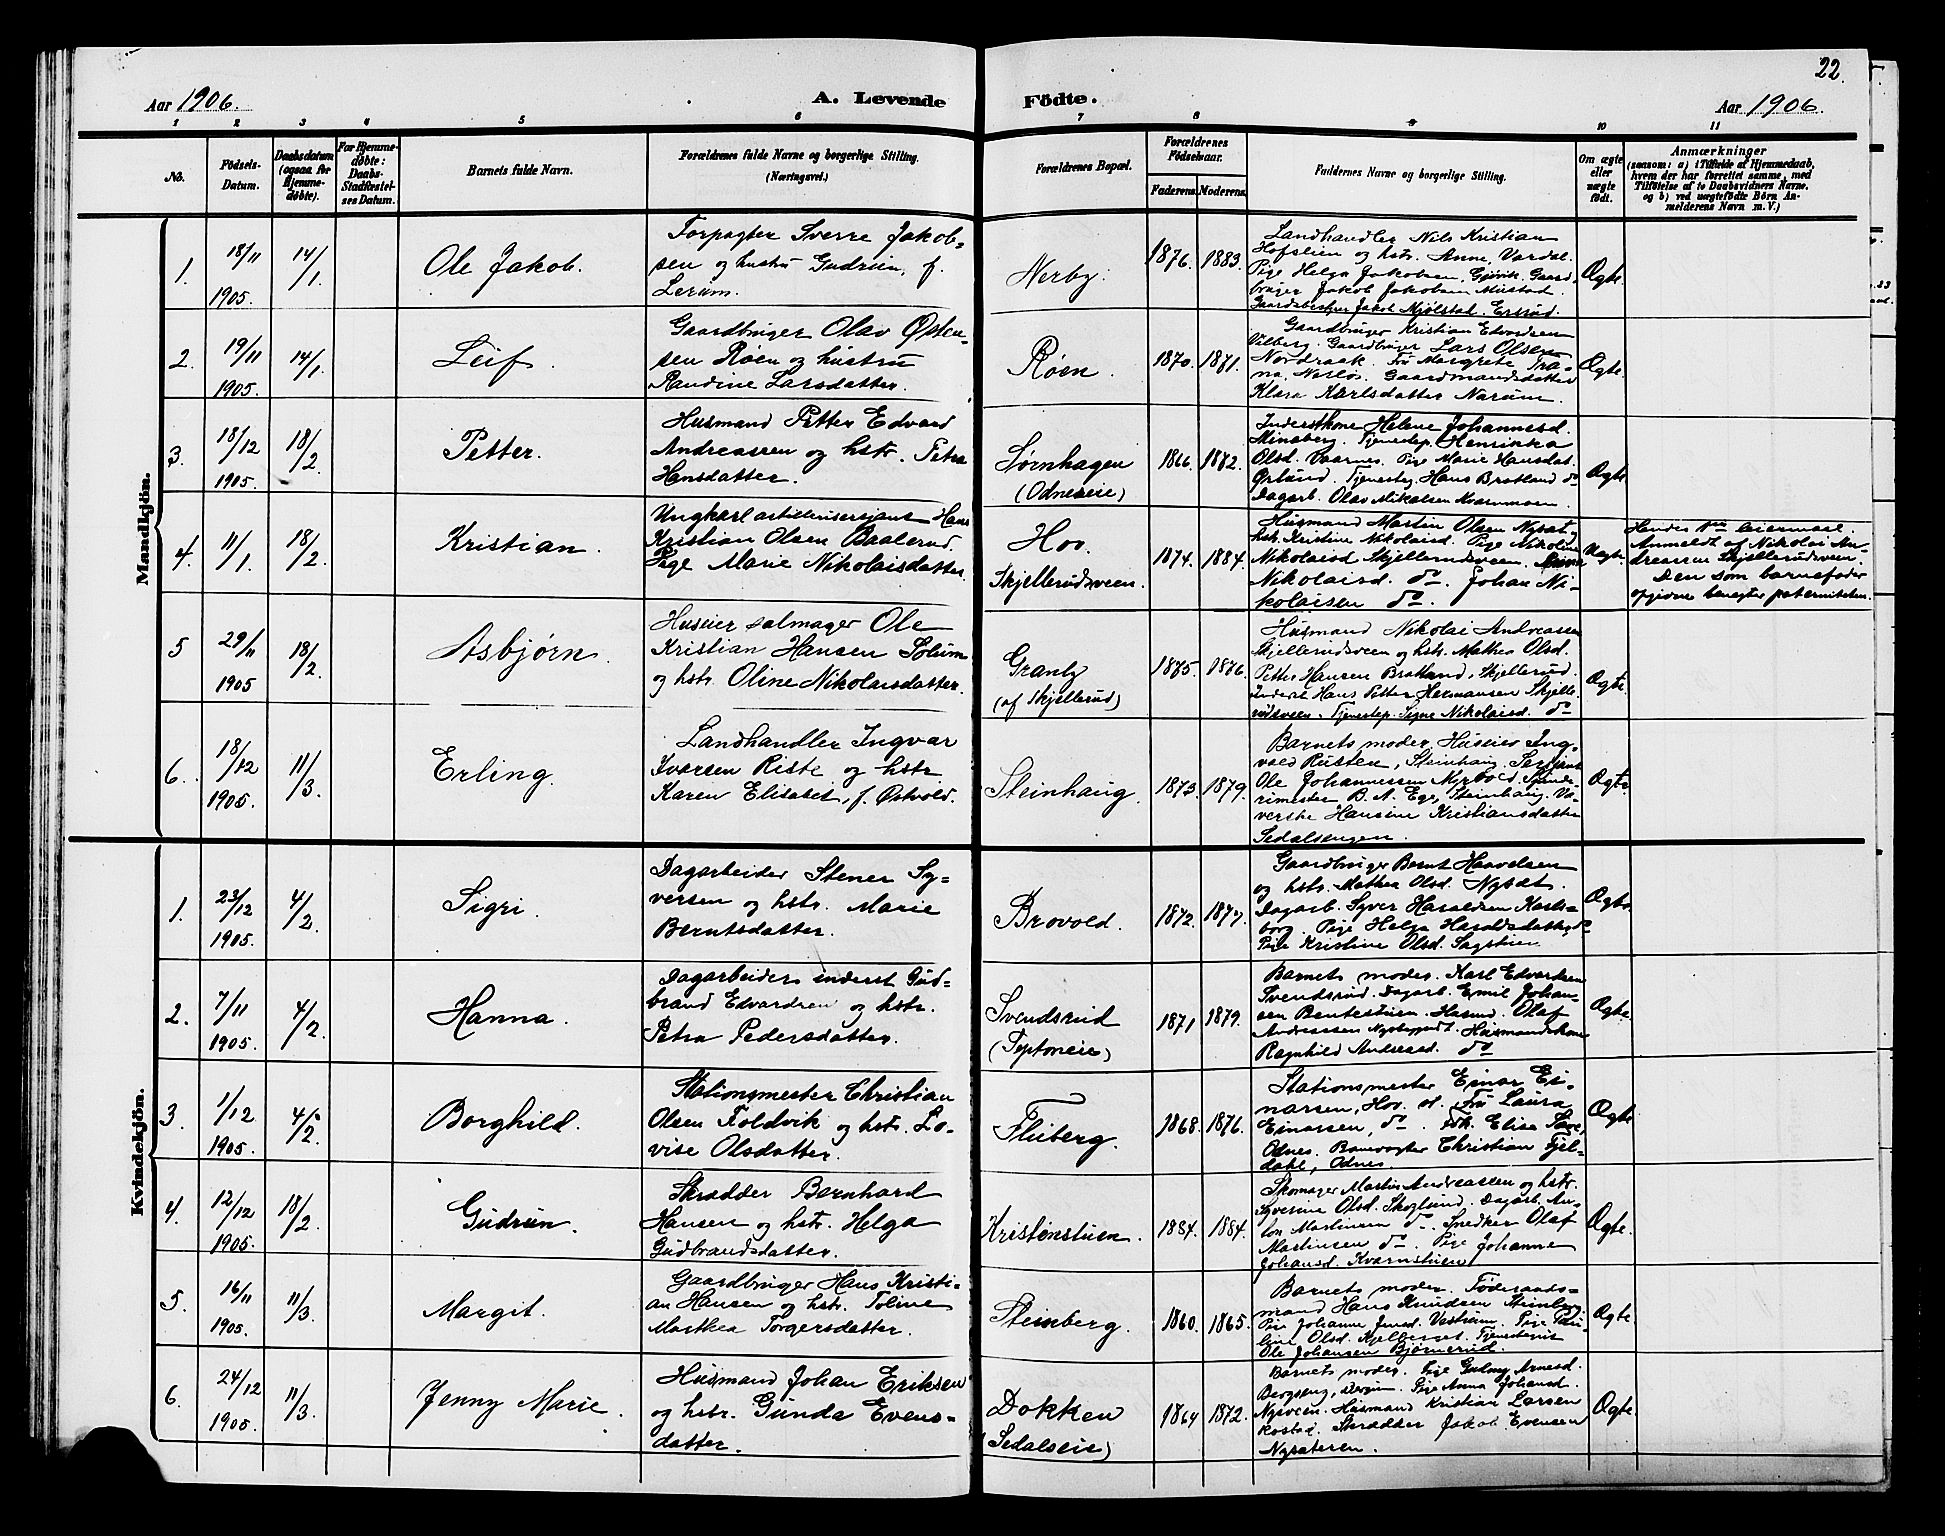 22.
Aar 1906.
A. Levende Födte.
Aar 1906.
1 2 3 4 5 6 7 8 9 10 11
No.
Födsels-Datum.
Daabsdatum (ogsaa for Hjemmedöbte).
For Hjemmedöbte: Daabs-Stadfæstelses Datum.
Barnets fulde Navn.
Forældrenes fulde Navne og borgerlige Stilling.
(Næringsvei.)
Forældrenes Bopæl.
Forældrenes Födselsaar.
Faderens. Moderens.
Faddernes Navne og borgerlige Stilling.
Om ægte eller uægte födt.
Anmærkninger
(saasom: a) i Tilfælde af Hjemmedaab, hvem der har forrettet samme, med Tilföielse af to Daabsvidners Navne, og b) ved uægtefödte Börn Anmelderens Navn m. V.)
Mandkjön.
1. 18/11 1905. 14/1 Ole Jakob.
Forpagter Sverre Jakob-
sen og hustru Gudrun, f.
Lerum.
Nerby. 1876. 1883.
Landhandler Nils Kristian
Hofslien og hstr. Anne, Vardal.
Pige Helga Jakobsen, Gjøvik. Gaard-
bruger Jakob Jakobsen Mustad.
Gaardsbestyrer Jakob Mjølstad.
Ægte.
2. 19/11 1905. 14/1 Leif.
Gaardbruger Olav Østen-
sen Røen og hustru
Randine Larsdatter.
Røen. 1870. 1871.
Gaardbruger Kristian Edvardsen
Vilberg. Gaardbruger Lars Olsen
Nordraak. Fru Margrete
Gaardmandsdatter
Klara Karlsdatter Narum.
Ægte.
3. 18/12 1905. 18/2 Petter.
Husmand Petter Edvard
Andreassen og hstr. Petra
Hansdatter.
Sørnhagen
(Odneseie)
1866. 1872.
Inderstkone Helene Johannesd.
Tjenestep. Henrikka
Olsd. Vaarnes. Pige Marie Hansdat.
Ørlund. Tjenesteg. Hans Bratland do
Dagarb. Olav Mikalsen Kvarnmoen.
Ægte.
4. 11/1 18/2 Kristian.
Ungkarl artillirisersjant Hans
Kristian Olsen Baalerud.
Pige Marie Nikolaisdatter.
Hov.
Skjellerudsveen.
1874. 1884.
Husmand Martin Olsen Nysæt,
hstr. Kristine Nikolaisd. Pige Nikoline
Nikolaisd Skjellerudsveen.
Nikolaisd. do. Johan Ni-
kolaisen do.
Uægte.
Hendes 1ste leiermaal.
Anmeldt af Nikolai An-
dreassen Skjellerudsveen.
Den som barnefader
opgivne benegter paterniteten.
5 29/11 1905 18/2 Asbjørn.
Huseier salmager Ole
Kristian Hansen Solum
og hstr. Oline Nikolaisdatter.
Granly
(af Skjellerud)
1875. 1876.
Husmand Nikolai Andreassen
Skjellerudsveen og hstr. Mathea Olsd.
Petter Hansen Bratland, Skjellerud.
Inderst Hans Petter Hermansen Skjelle-
rudsveen. Tjenestep. Signe Nikolaisd. do
Ægte.
6. 18/12 1905. 11/3. Erling.
Landhandler Ingvar
Ivarsen Riste og hstr
Karen Elisabet, f. Østvold.
Steinhaug. 1873. 1879.
Barnets moder. Huseier Ing-
vald Rusten, Steinhaug. Sersjant
Ole Johannessen Nyvold. Skinde-
rimester B. A. Ege, Steinhaug. Væ-
verske Hansine Kristiansdatter
Sedalsengen.
Ægte.
Kvindekjön.
1. 23/12 1905. 4/2. Sigri.
Dagarbeider Stener Sy-
versen og hstr. Marie
Berntsdatter.
Brovold. 1872. 1877.
Gaardbruger Bernt Haavelsen
og hstr. Mathea Olsd. Nysæt.
Dagarb. Syver Haraldsen Karls-
borg. Pige Helga Haraldsdatter do
Pige Kristine Olsd. Sagstuen.
Ægte.
2. 7/11 1905. 4/2 Hanna.
Dagarbeider inderst Gud-
brand Edvardsen og hstr.
Petra Pedersdatter.
Svendsrud
(Toptoneie)
1871 1879.
Barnets moder. Karl Edvardsen
Svendsrud. Dagarb. Emil Johan-
sen Bentestuen. Husmd. Olaf
Andreassen Husmandskone
Ragnhild Andreasd. do
Ægte.
3 1/12 1905. 4/2. Borghild.
Stationsmester Christian
Olsen Foldvik og hstr. Lo-
vise Olsdatter.
Fluberg. 1868. 1876.
Stationsmester Einar Ei-
narsen, Hov st. Fru Laura
Einarsen, do. Frk. Elise
Odnes. Banevogter Christian Fjel-
dahl, Odnes.
Ægte
4. 12/12 1905. 18/2 Gudrun.
Skrædder Bernhard
Hansen og hstr. Helga
Gudbrandsdatter.
Kristønstuen. 1884. 1884.
Skomager Martin Andreassen og hstr.
Syverine Olsd. Skoglund. Dagarb. An-
ton Martinsen do. Snedker Olaf
Martinsen do. Pige Johanne
Johansd. Kvarnstuen.
Ægte.
5. 16/11 1905. 11/3 Margit.
Gaardbruger Hans Kristi-
an Hansen og hstr. Toline
Marthea Torgersdatter.
Steinberg. 1860. 1865.
Barnets moder. Føderaads-
mand Hans Knudsen Steinberg
Pige Johanne Vestrum. Pige Pau-
line Olsd. Tjenestegut
Ole Johansen Bjørnerud.
Ægte.
6. 24/12 1905. 11/3. Jenny Marie.
Husmand Johan Eriksen
og hstr. Gunda Evens-
datter.
Dokken
(Sedalseie)
1864 1872.
Barnets moder. Pige Gudny Arnesd.
Bergseng, Pige Anna Johansd.
Nysveen. Husmand Kristian Larsen
Skrædder Jakob Evensen
Nysæteren.
Ægte.